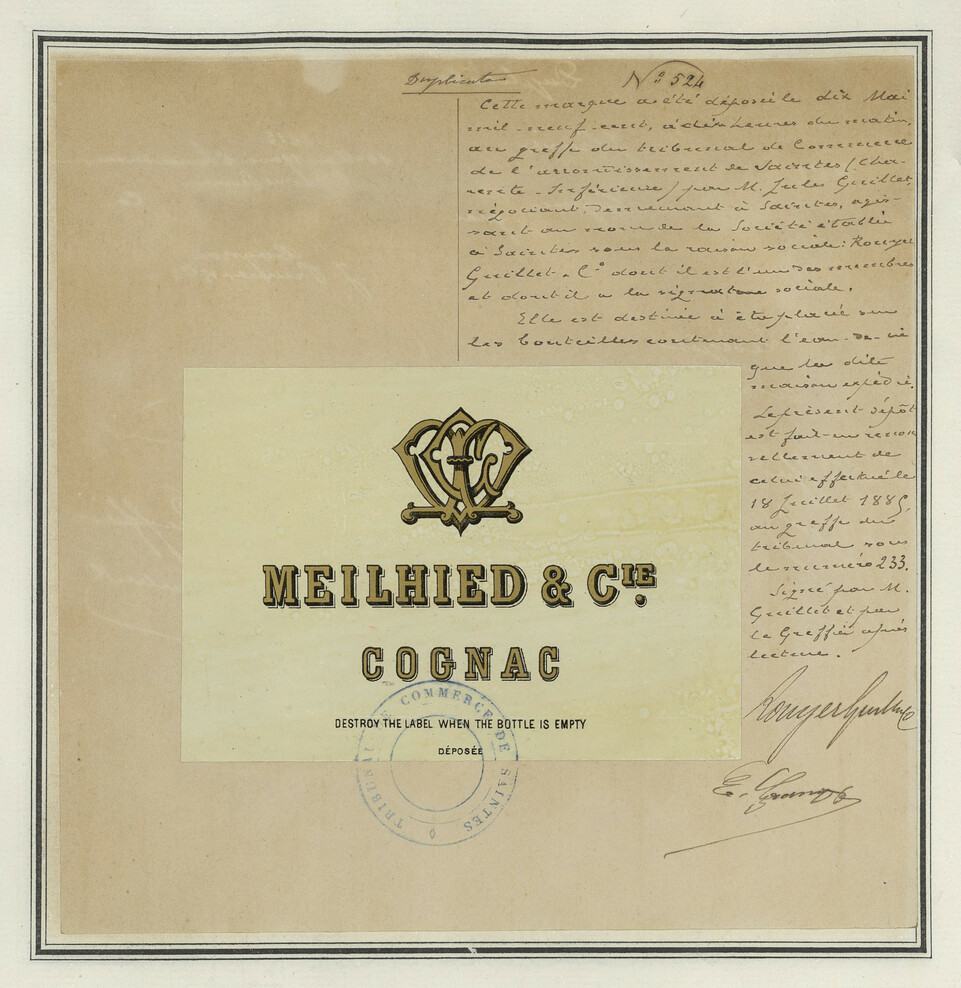 Duplicata
N° 524
Cette marque a été déposée le dix Mai
mil-neuf-cent, à dix heures du matin,
au greffe du tribunal de Commerce
de l'arrondissement de Saintes (Cha-
rente-Inférieure) par M. Jules Guillet,
négociant, demeurant à Saintes, agis-
sant au nom de la Société établie
à Saintes sous la raison sociale: Rouyer
Guillet & Cº dont il est l'un des membres
et dont il a la signature sociale.
Elle est destinée à être placée sur
les bouteilles contenant l'eau-de-vie
que la dite
maison expédie.
Le présent dépôt
est fait en renou
vellement de
celui effectué le
18 Juillet 1885,
au greffe du
tribunal sous
le numéro 233.
Signé par M.
Guillet et par
le Greffier après
lecture.
Rouyer Guillet & C
MEILHIED & CIE.
COGNAC
DESTROY THE LABEL WHEN THE BOTTLE IS EMPTY
DÉPOSÉE
TRIBUNAL DE COMMERCE DE SAINTES